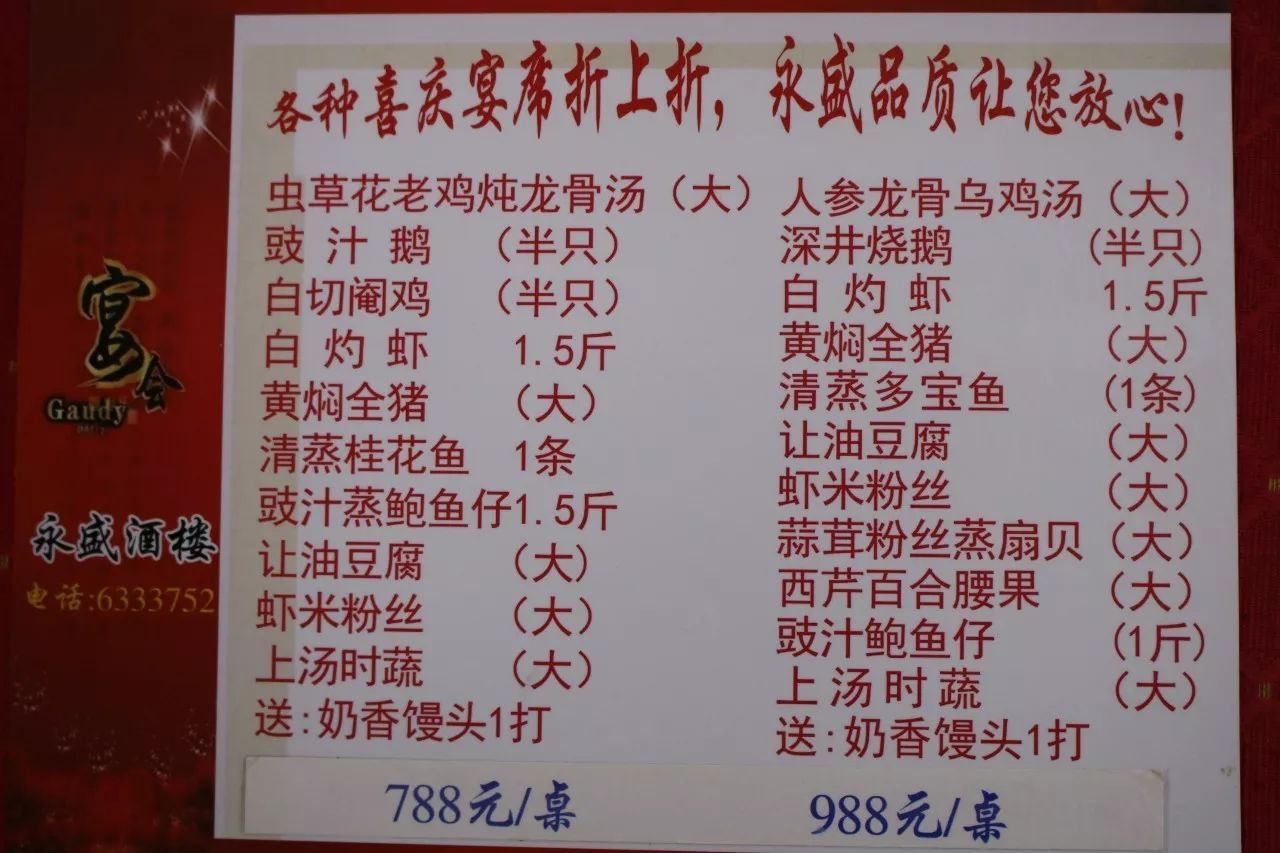 各种喜庆宴席折上折，永盛品质让您放心！
虫草花老鸡炖龙骨汤（大）
豉汁鹅（半只）
白切阉鸡（半只）
白灼虾 1.5斤
黄焖全猪（大）
清蒸桂花鱼 1条
豉汁蒸鲍鱼仔1.5斤
让油豆腐（大）
虾米粉丝（大）
上汤时蔬（大）
送:奶香馒头1打
788元/桌
人参龙骨乌鸡汤（大）
深井烧鹅（半只）
白灼虾 1.5斤
黄焖全猪（大）
清蒸多宝鱼（1条）
让油豆腐（大）
虾米粉丝（大）
蒜茸粉丝蒸扇贝（大）
西芹百合腰果（大）
豉汁鲍鱼仔（1斤）
上汤时蔬（大）
送:奶香馒头1打
988元/桌
宴会
Gaudy
party
永盛酒楼
电话:6333752